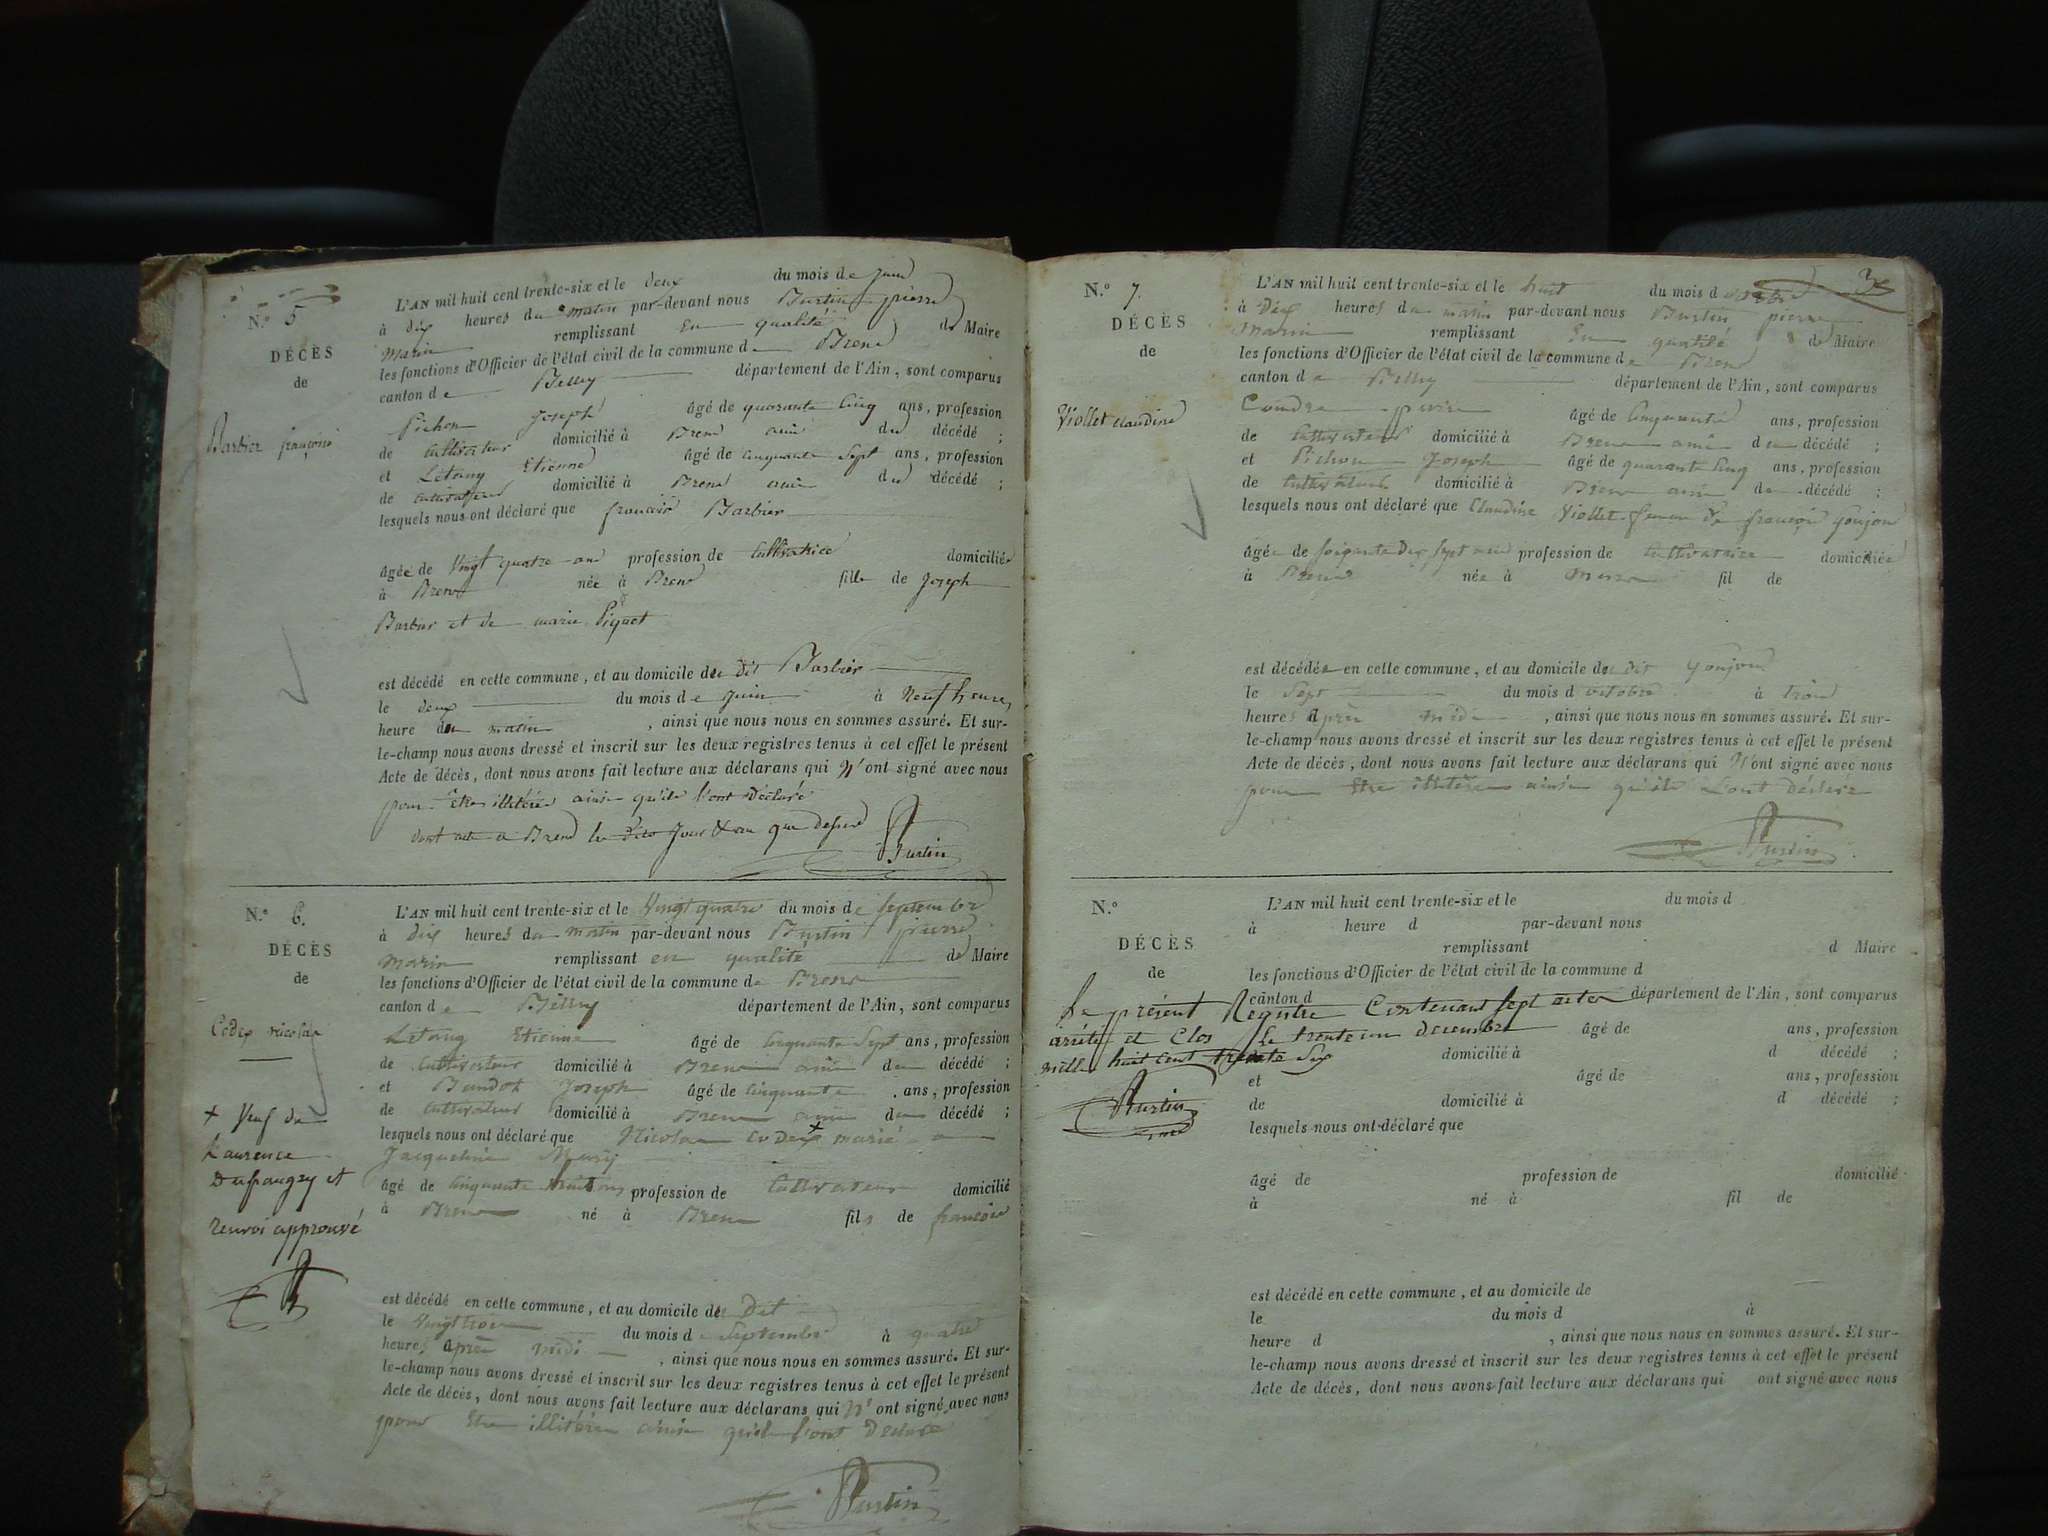 N.° 5
DÉCÈS
de
Barbier françoise
L'AN mil huit cent trente-six et le deux du mois de juin
à dix heures du matin par-devant nous Burtin pierre
Marin remplissant En qualité de Maire
les fonctions d'Officier de l'état civil de la commune de Brens
canton de Belley département de l'Ain, sont comparus
Pichon Joseph âgé de quarante cinq ans, profession
de cultivateur domicilié à Brens ami du décédé ;
et Létang Etienne âgé de cinquante sept ans, profession
de cultivateur domicilié à Brens ami du décédé ;
lesquels nous ont déclaré que françoise Barbier
âgée de vingt quatre ans profession de cultivatrice domiciliée
à Brens née à Brens fille de Joseph
Barbier et de marie Piquet
est décédé en cette commune, et au domicile du dit Barbier
le deux du mois de juin à Neuf heures
heure du matin, ainsi que nous nous en sommes assuré. Et sur-
le-champ nous avons dressé et inscrit sur les deux registres tenus à cet effet le présent
Acte de décès, dont nous avons fait lecture aux déclarans qui N'ont signé avec nous
pour être illitérés ainsi qu'ils l'ont déclaré
dont acte a Brens les dits jour & an que dessus
Burtin
N.° 6.
DÉCÈS
de
Codex nicolas
+ Veuf de
Laurence
Dufraugey et
renvoi approuvé
L'AN mil huit cent trente-six et le vingt quatre du mois de septembre
à dix heures du matin par-devant nous Burtin pierre
marin remplissant en qualité de Maire
les fonctions d'Officier de l'état civil de la commune de Brens
canton de Belley département de l'Ain, sont comparus
Létang Etienne âgé de cinquante sept ans, profession
de cultivateur domicilié à Brens ami du décédé ;
et Bendot Joseph âgé de cinquante ans, profession
de cultivateur domicilié à Brens ami du décédé ;
lesquels nous ont déclaré que Nicolas Codex + marié a
Jacqueline Meurij
âgé de cinquante huit ans profession de cultivateur domicilié
à Brens né à Brens fils de françois
est décédé en cette commune, et au domicile de dit
le vingt trois du mois de septembre à quatre
heures après midi, ainsi que nous nous en sommes assuré. Et sur-
le-champ nous avons dressé et inscrit sur les deux registres tenus à cet effet le présent
Acte de décès, dont nous avons fait lecture aux déclarans qui N'ont signé avec nous
pour être illitérés ainsi qu'ils l'ont déclaré
Burtin
3
N.° 7.
DÉCÈS
de
Viollet claudine
L'AN mil huit cent trente-six et le huit du mois d octobre
à dix heures du matin par-devant nous Burtin pierre
Marin remplissant En qualité de Maire
les fonctions d'Officier de l'état civil de la commune de Brens
canton de Belley département de l'Ain, sont comparus
Coudre pierre âgé de cinquante ans, profession
de cultivateur domicilié à Brens ami du décédé ;
et Pichon Joseph âgé de quarante cinq ans, profession
de cultivateur domicilié à Brens ami du décédé ;
lesquels nous ont déclaré que Claudine Viollet femme de françois Goujon
âgée de soixante dix sept ans profession de cultivatrice domiciliée
à Brens née à fil de
est décédée en cette commune, et au domicile du dit Goujon
le sept du mois d octobre à trois
heures après midi, ainsi que nous nous en sommes assuré. Et sur-
le-champ nous avons dressé et inscrit sur les deux registres tenus à cet effet le présent
Acte de décès, dont nous avons fait lecture aux déclarans qui N'ont signé avec nous
pour être illitérés ainsi qu'ils l'ont déclaré
Burtin
N.°
DÉCÈS
de
L'AN mil huit cent trente-six et le du mois d
à heure d par-devant nous
remplissant d Maire
les fonctions d'Officier de l'état civil de la commune d
canton d département de l'Ain, sont comparus
Le présent Registre Contenant sept actes
arrêté et Clos Le trente un decembre
mille huit cent trente Six
Burtin
âgé de ans, profession
domicilié à d décédé ;
et âgé de ans, profession
de domicilié à d décédé ;
lesquels nous ont déclaré que
âgé de profession de domicilié
à né à fil de
est décédé en cette commune, et au domicile de
le du mois d à
heure d, ainsi que nous nous en sommes assuré. Et sur-
le-champ nous avons dressé et inscrit sur les deux registres tenus à cet effet le présent
Acte de décès, dont nous avons fait lecture aux déclarans qui ont signé avec nous